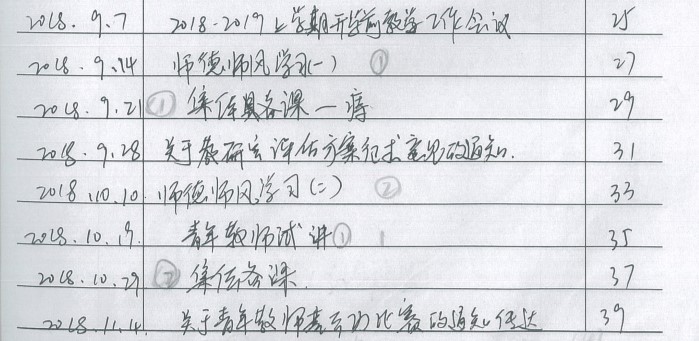 2018.9.7 2018-2019上学期开学前教学工作会议 25
2018.9.14 师德师风学习(一) ① 27
2018.9.21 ① 集体备课一 29
2018.9.28 关于教研室评估方案征求意见的通知. 31
2018.10.10. 师德师风学习(二) ② 33
2018.10.19. 青年教师试讲① 1 35
2018.10.29 ② 集体备课. 37
2018.11.14. 关于青年教师基本功比赛的通知传达 39